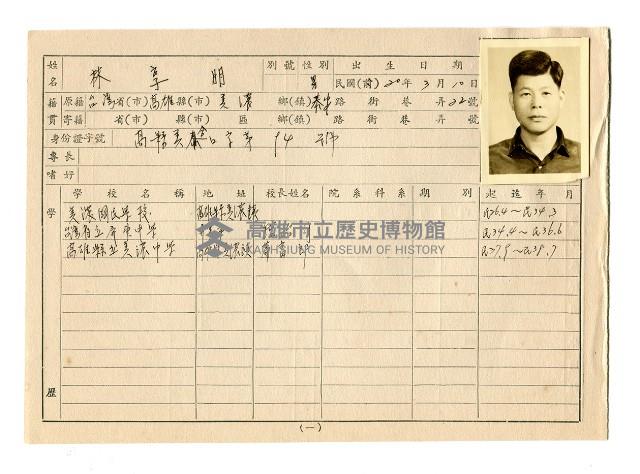 姓名 林享明 別號 性別 男 出生日期 民國(前) 20年3月10日
籍貫 原籍 台灣省(市)高雄縣(市)美濃 鄉(鎮)泰安路 街 巷 弄22號
寄籍 省(市) 縣(市) 區 鄉(鎮) 路 街 巷 弄 號
身份證字號 高縣美 字第 94 號
專長
嗜好
學歷 學校名稱 地址 校長姓名 院系科系 期別 起迄年月
美濃國民學校 高雄縣美濃鎮 民26.4～民34.3
台灣省立屏東中學 民34.4～民36.6
高雄縣立美濃中學 美濃鎮 民37.9～民39.7
高雄市立歷史博物館
KAOHSIUNG MUSEUM OF HISTORY
(一)